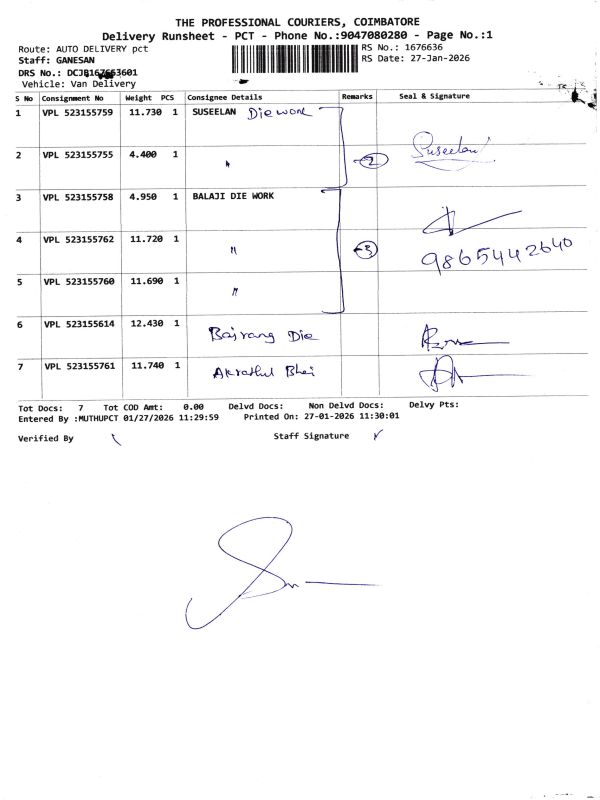 THE PROFESSIONAL COURIERS, COIMBATORE
Delivery Runsheet - PCT - Phone No.:9047080280 - Page No.:1
Route: AUTO DELIVERY pct RS No.: 1676636
Staff: GANESAN RS Date: 27-Jan-2026
DRS No.:
Vehicle: Van Delivery
S No Consignment No Weight PCS Consignee Details Remarks Seal & Signature
1 VPL 523155759 11.730 1 SUSEELAN Die work
2 VPL 523155755 4.400 1 " 2 Suseelan
3 VPL 523155758 4.950 1 BALAJI DIE WORK
4 VPL 523155762 11.720 1 " 3 9865442640
5 VPL 523155760 11.690 1 "
6 VPL 523155614 12.430 1 Bajrang Die
7 VPL 523155761 11.740 1 Bhai
Tot Docs: 7 Tot COD Amt: 0.00 Delvd Docs: Non Delvd Docs: Delvy Pts:
Entered By :MUTHUPCT 01/27/2026 11:29:59 Printed On: 27-01-2026 11:30:01
Verified By Staff Signature